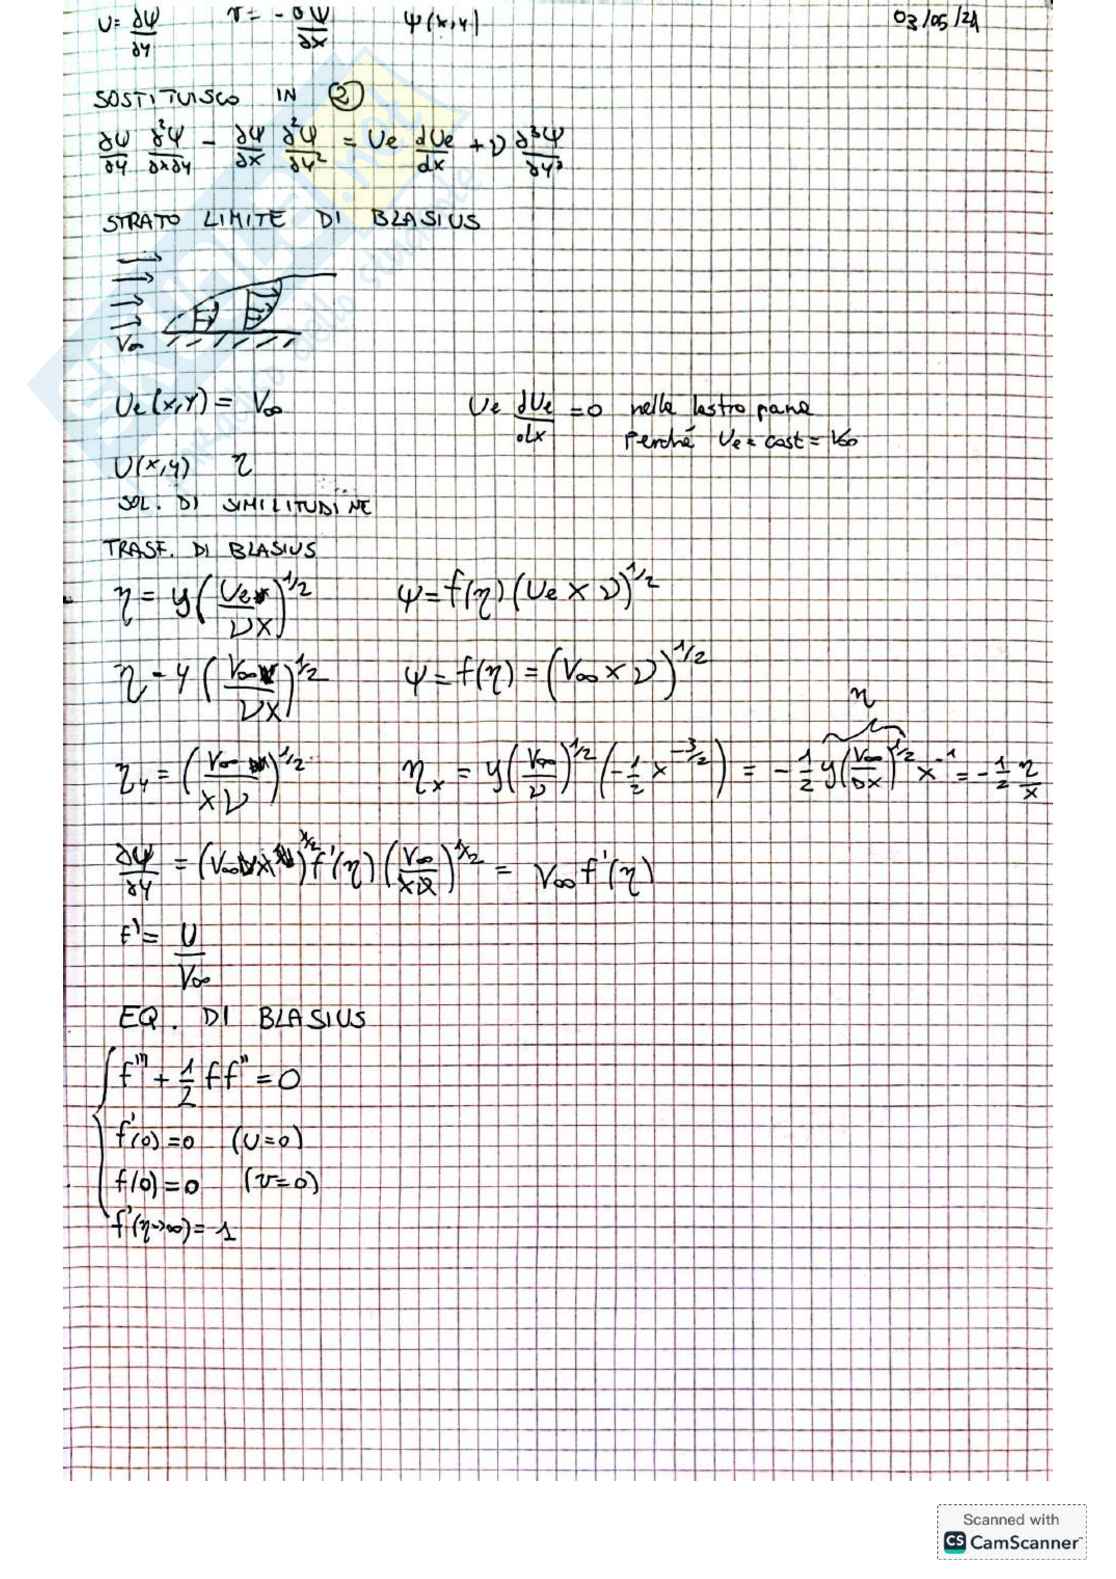 U = ∂ψ/∂y   v = - ∂ψ/∂x   ψ(x,y)   03/05/21
SOSTITUISCO IN ②
∂ψ/∂y ∂²ψ/∂x∂y - ∂ψ/∂x ∂²ψ/∂y² = Ue dUe/dx + ν ∂³ψ/∂y³
STRATO LIMITE DI BLASIUS
V∞
Ue(x,y) = V∞   Ue dUe/dx = 0 nella lastra piana
perché Ue = cost = V∞
U(x,y)   η
SOL. DI SIMILITUDINE
TRASF. DI BLASIUS
η = y(Ue/νx)^1/2   ψ = f(η)(Ue x ν)^1/2
η = y(V∞/νx)^1/2   ψ = f(η) = (V∞ x ν)^1/2
η
ηy = (V∞/xν)^1/2   ηx = y(V∞/ν)^1/2 (-1/2 x^-3/2) = -1/2 y(V∞/νx)^1/2 x^-1 = -1/2 η/x
∂ψ/∂y = (V∞ x ν)^1/2 f'(η) (V∞/xν)^1/2 = V∞ f'(η)
f' = U/V∞
EQ. DI BLASIUS
f''' + 1/2 f f'' = 0
f'(0) = 0   (U=0)
f(0) = 0   (v=0)
f'(η→∞) = 1
Scanned with
CS CamScanner